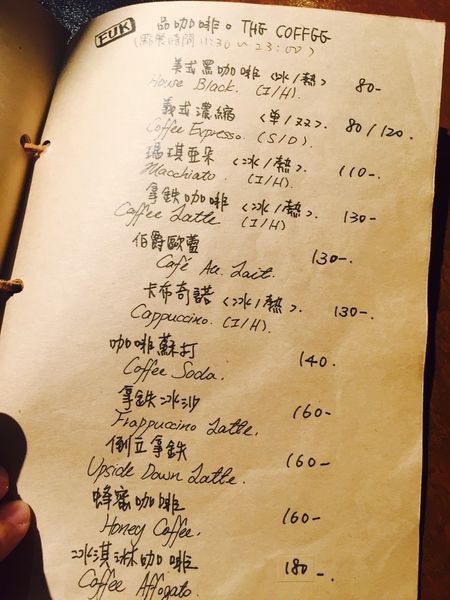 FUK 品咖啡。THE COFFEE
(點餐時間 11:30 ~ 23:00)
美式黑咖啡 <冰/熱> 80-
House Black. (I/H).
義式濃縮 <单/双>. 80/120.
Coffee Expresso. (S/D).
瑪琪亞朵 <冰/熱>. 110-
Macchiato. (I/H).
拿鐵咖啡 <冰/熱>. 130-
Coffee Latte (I/H)
伯爵歐蕾 130-
Café Au. Lait.
卡布奇諾 <冰/熱>. 130-
Cappuccino. (I/H).
咖啡蘇打 140.
Coffee Soda.
拿鐵冰沙 160-
Frappuccino Latte.
倒立拿鐵 160-
Upside Down Latte.
蜂蜜咖啡 160-
Honey Coffee.
冰淇淋咖啡 180-.
Coffee Affogato.